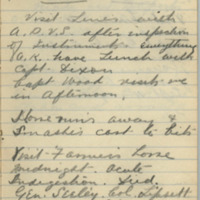 Visit Lines with
A.D.V.S. after inspection
of Instruments. everything
O.K. have Lunch with
Capt. Dixon
Capt Wood visits me
in Afternoon.
Horse runs away &
Smashes cart to bits
Visit Farmers horse
midnight Acute
Indigestion. Died
Gen. Seeley Col Lipsett